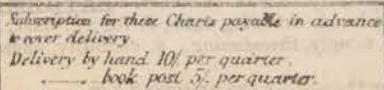 Subscription for these Charts payable in advance
to cover delivery.
Delivery by hand 10/. per quarter.
„ book post 5/. per quarter.